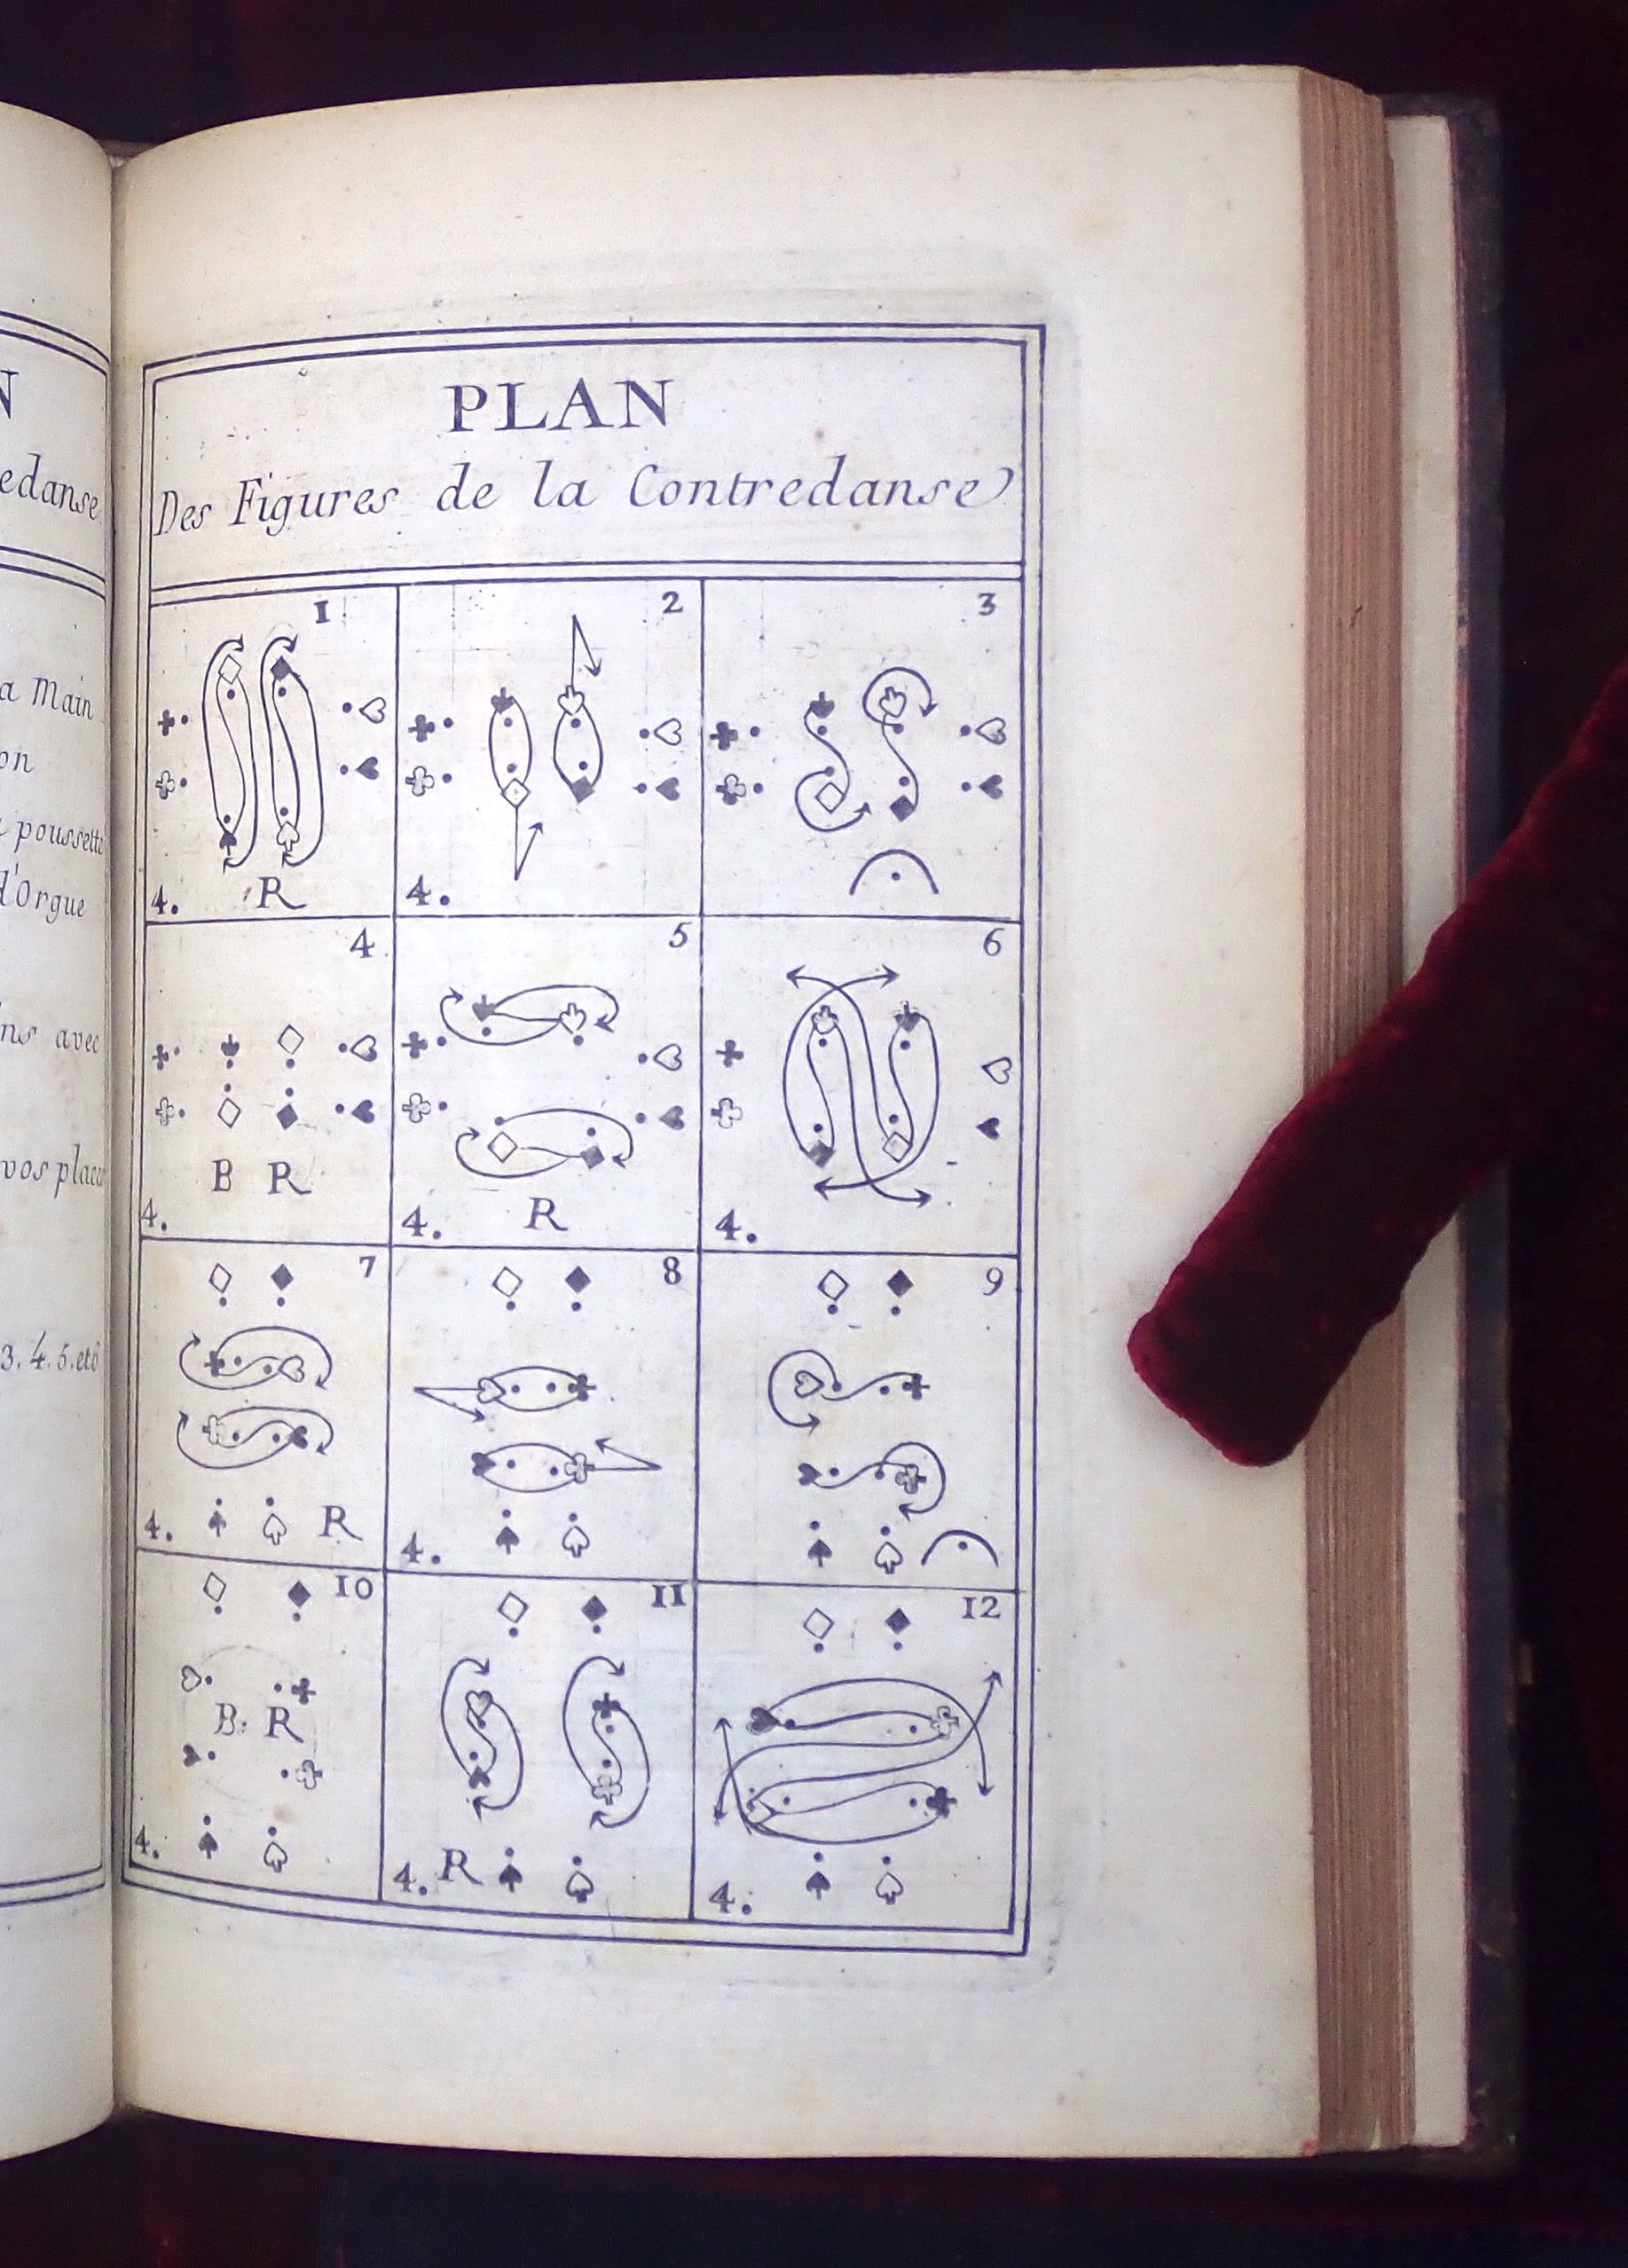 N
edanse
a Main
on
poussette
d'Orgue
ns avec
vos places
3. 4. 5. et 6
PLAN
Des Figures de la Contredanse
1
4. R
2
4.
3
4
B R
4.
5
4. R
6
4.
7
4. R
8
4.
9
10
B. R
4.
11
4. R
12
4.